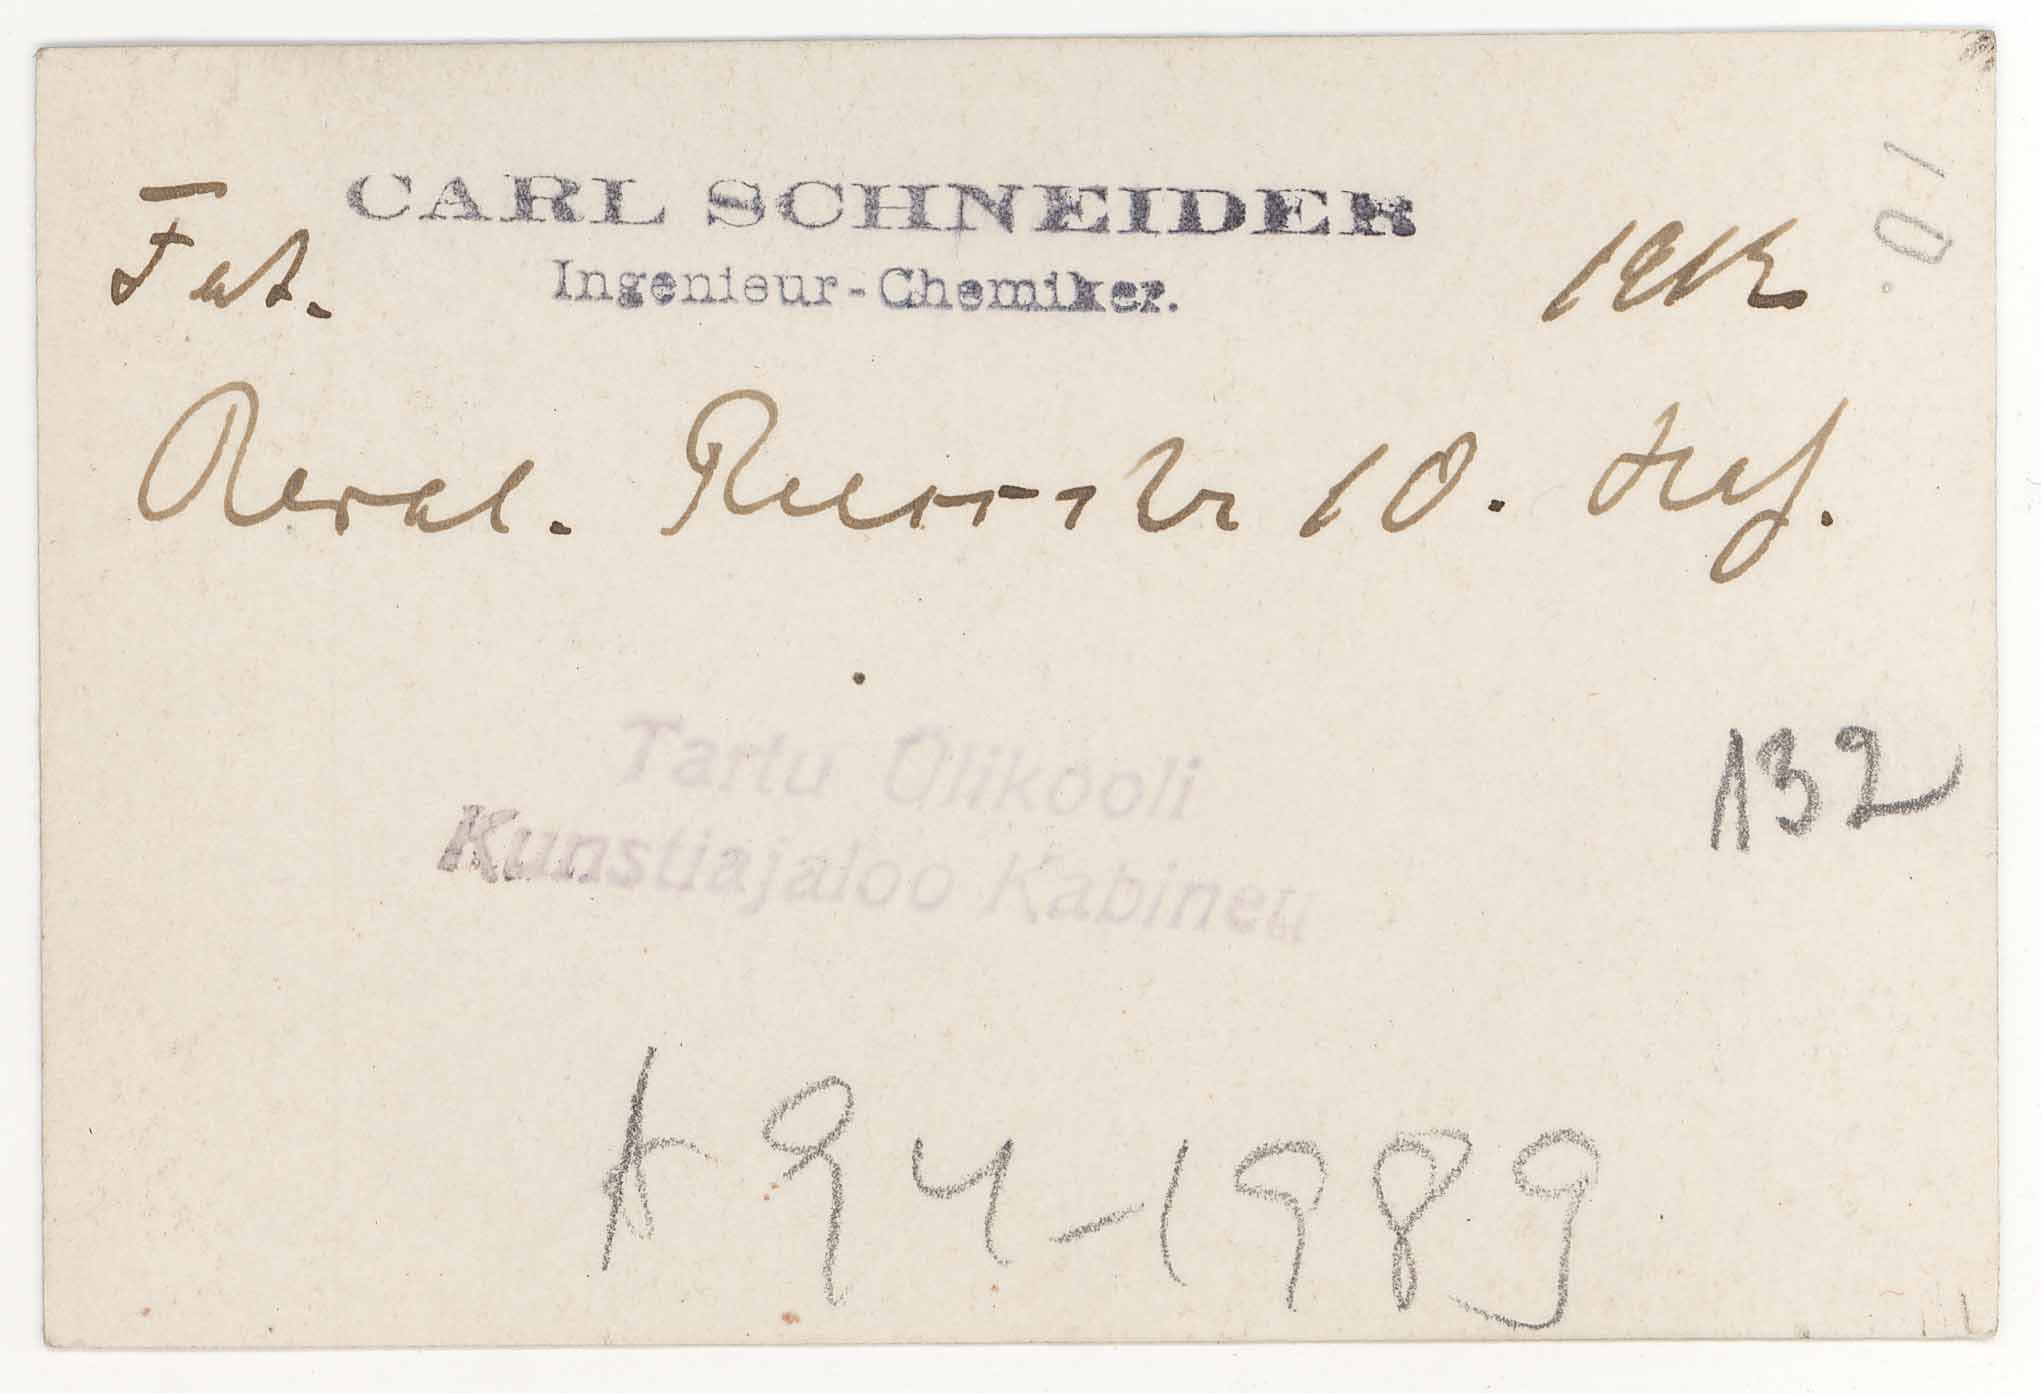 CARL SCHNEIDER
Fot. Ingenieur-Chemiker. 1912
Reval. Russstr 10. Hof.
Tartu Ülikooli
Kunstiajaloo Kabinett
132
A94-1989